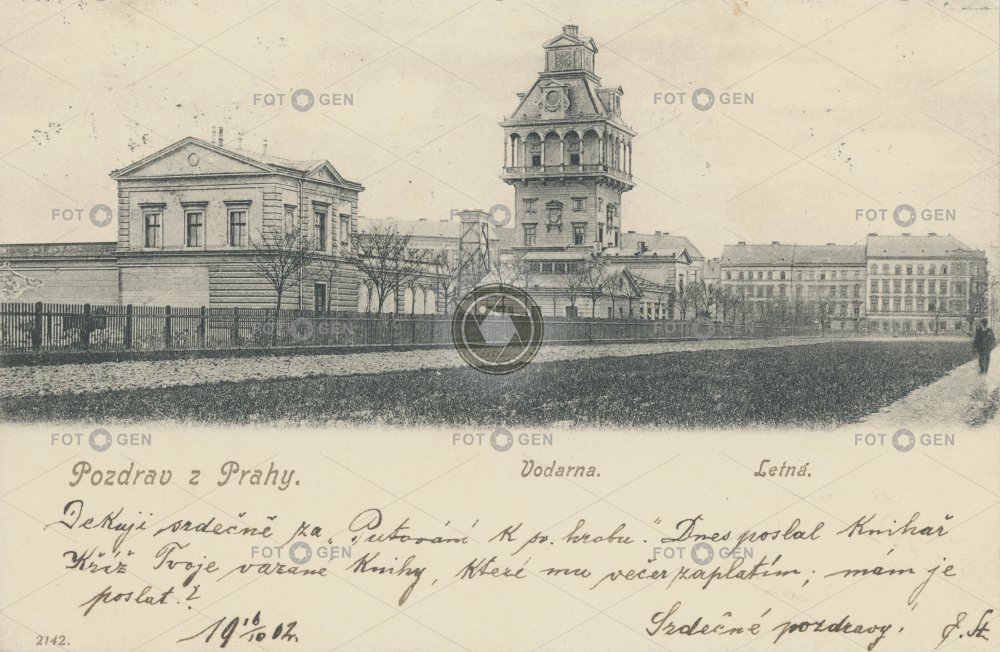 FOTOGEN FOTOGEN
FOTOGEN FOTOGEN FOTOGEN
FOTOGEN FOTOGEN
FOTOGEN FOTOGEN FOTOGEN
Pozdrav z Prahy. Vodarna. Letná.
Dekuji srdečně za „Putování k sv. hrobu." Dnes poslal Knihař
FOTOGEN FOTOGEN
Kříž Tvoje vazane Knihy, které mu večer zaplatím; mám je
poslat?
2142. 19 16/10 02. Srdečné pozdravy! F. St.